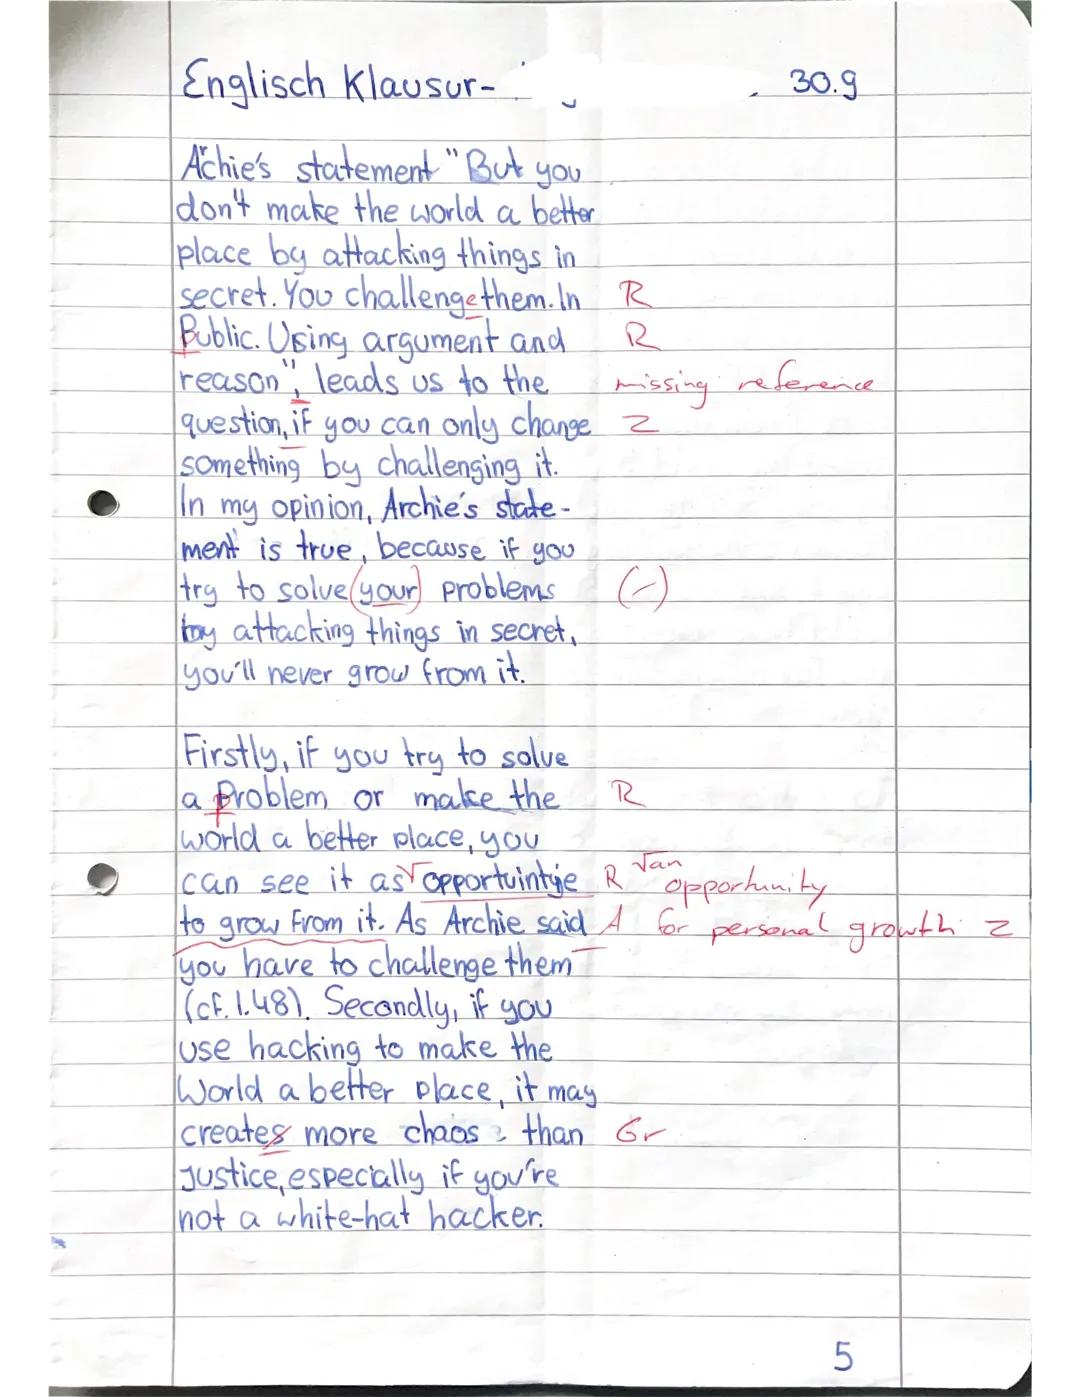 Englisch Klausur- 30.9
Achie's statement "But you
don't make the world a better
place by attacking things in
secret. You challenge them. In R
Public. Using argument and R
reason", leads us to the missing reference
question, if you can only change Z
something by challenging it.
In my opinion, Archie's state-
ment is true, because if you
try to solve (your) problems (-)
by attacking things in secret,
you'll never grow from it.
Firstly, if you try to solve
a Problem or make the R
world a better place, you
can see it as √ opportuintye R √an opportunity
to grow from it. As Archie said A for personal growth Z
you have to challenge them
(cf. l.48). Secondly, if you
use hacking to make the
World a better place, it may
creates more chaos than Gr
Justice, especially if you're
not a white-hat hacker.
5